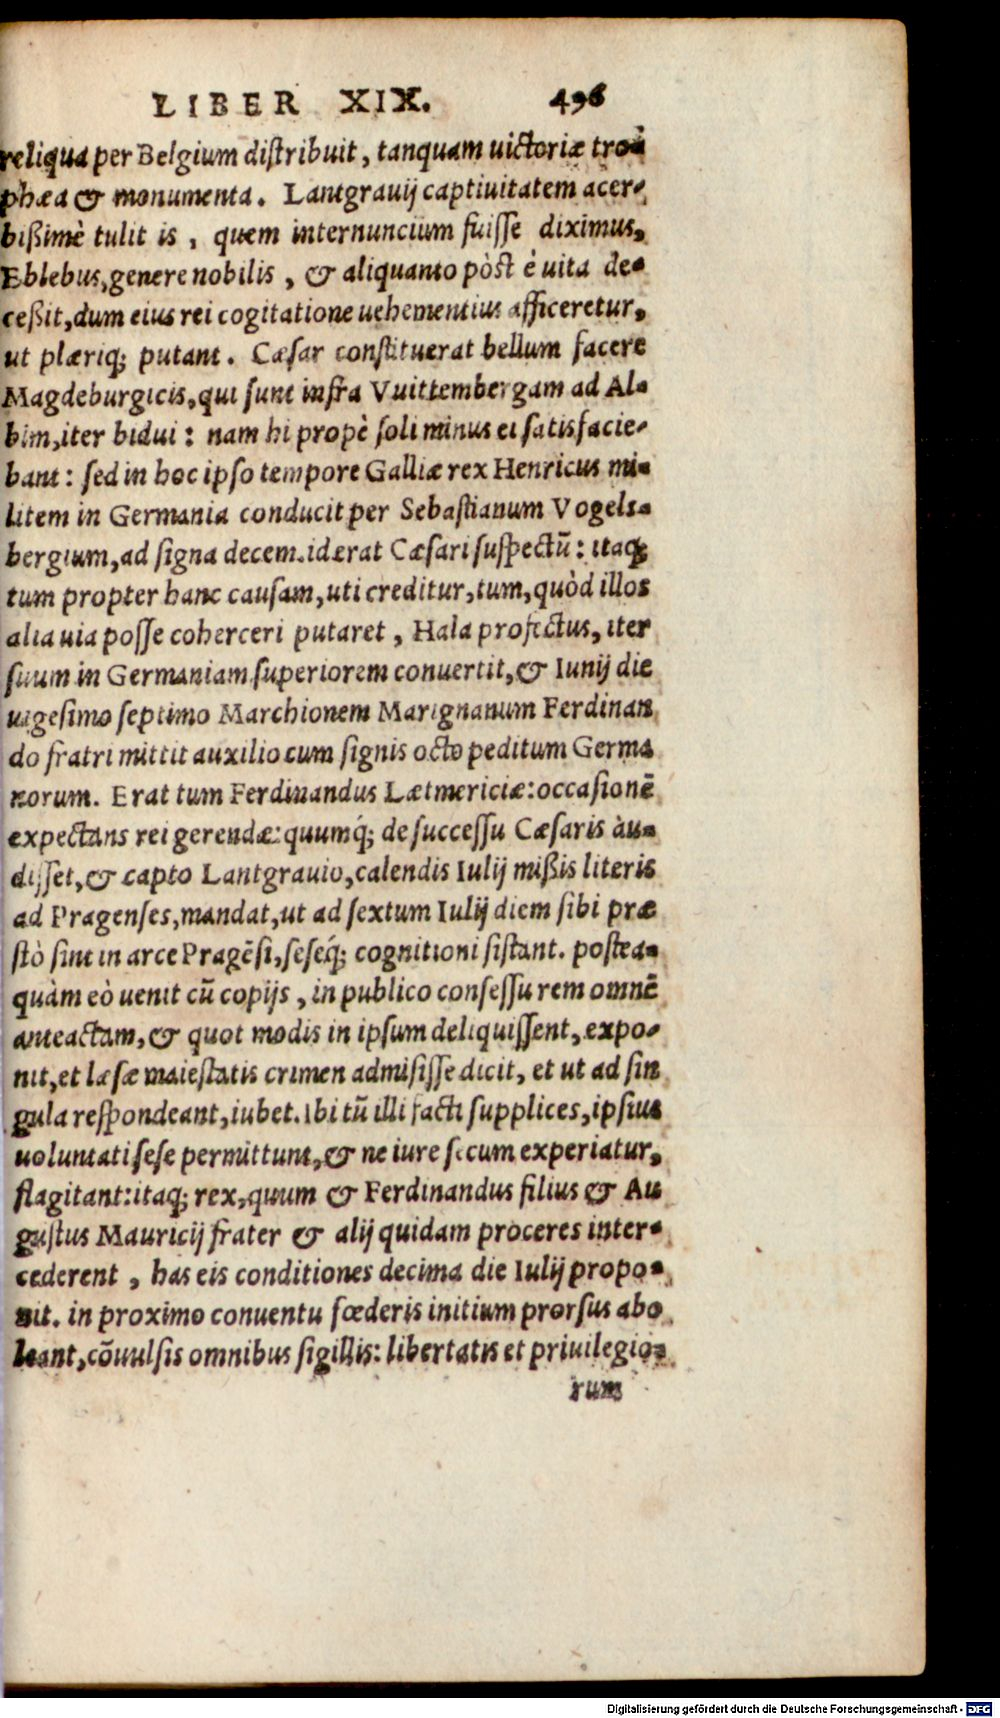 LIBER XIX. 496
reliqua per Belgium distribuit, tanquam uictoriæ tro-
phæa & monumenta. Lantgrauij captiuitatem acer-
bißimè tulit is, quem internuncium fuisse diximus,
Eblebus, genere nobilis, & aliquanto pòst è uita de-
ceßit, dum eius rei cogitatione uehementius afficeretur,
ut plæriq; putant. Cæsar constituerat bellum facere
Magdeburgicis, qui sunt infra Vuittembergam ad Al-
bim, iter bidui: nam hi propè soli minus ei satisfacie-
bant: sed in hoc ipso tempore Galliæ rex Henricus mi-
litem in Germania conducit per Sebastianum Vogels-
bergium, ad signa decem. id erat Cæsari suspectū: itaq;
tum propter hanc causam, uti creditur, tum, quòd illos
alia uia posse coherceri putaret, Hala profectus, iter
suum in Germaniam superiorem conuertit, & Iunij die
uigesimo septimo Marchionem Marignanum Ferdinan
do fratri mittit auxilio cum signis octo peditum Germa
norum. Erat tum Ferdinandus Lætmericiæ: occasionē
expectans rei gerendæ: quumq́; de successu Cæsaris au-
disset, & capto Lantgrauio, calendis Iulij mißis literis
ad Pragenses, mandat, ut ad sextum Iulij diem sibi præ
stò sint in arce Pragēsi, seseq́; cognitioni sistant. postea-
quàm eò uenit cū copijs, in publico consessu rem omnē
anteactam, & quot modis in ipsum deliquissent, expo-
nit, et læsæ maiestatis crimen admisisse dicit, et ut ad sin
gula respondeant, iubet. Ibi tū illi facti supplices, ipsius
uoluntati sese permittunt, & ne iure secum experiatur,
flagitant: itaq; rex, quum & Ferdinandus filius & Au
gustus Mauricij frater & alij quidam proceres inter-
cederent, has eis conditiones decima die Iulij propo-
nit. in proximo conuentu fœderis initium prorsus abo
leant, cōuulsis omnibus sigillis: libertatis et priuilegio-
rum
Digitalisierung gefördert durch die Deutsche Forschungsgemeinschaft - DFG